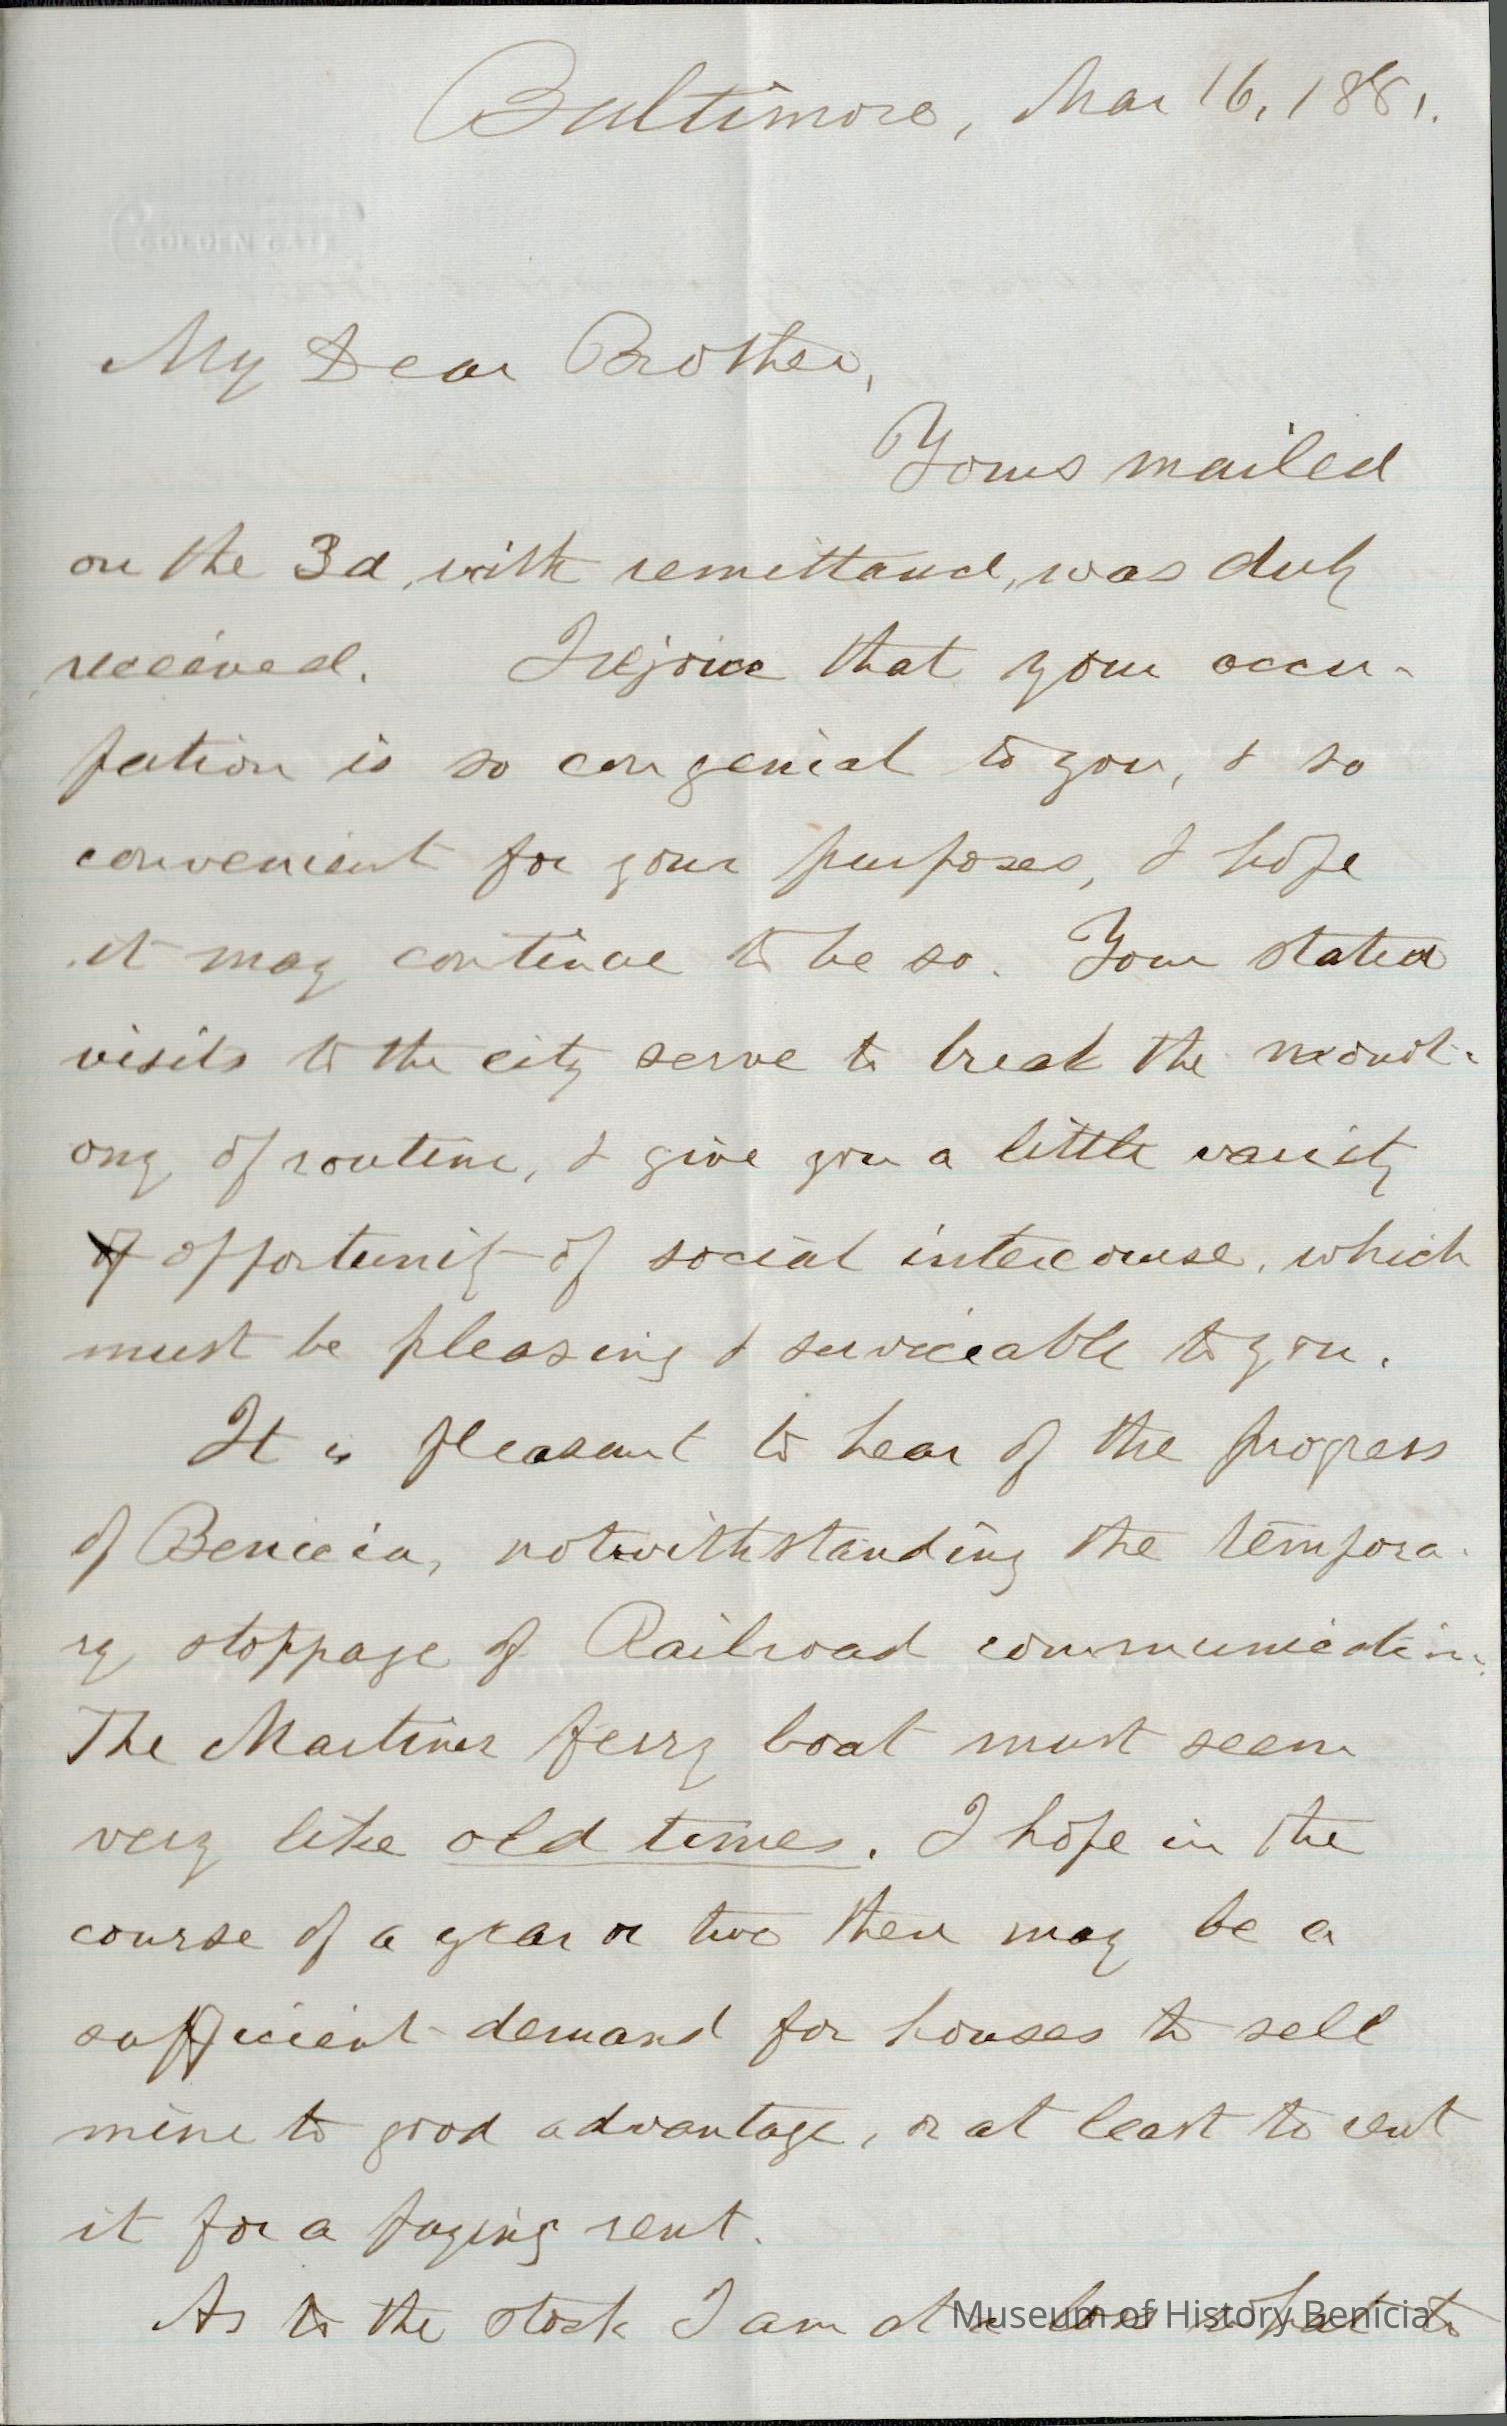 Baltimore, Mar 16, 1881.
GOLDEN GATE
My Dear Brother,
Yours mailed
on the 3d, with remittance, was duly
received. I rejoice that your occu-
pation is so congenial to you, & so
convenient for your purposes, & hope
it may continue to be so. Your stated
visits to the city serve to break the monot-
ony of routine, & give you a little variety
of opportunity of social intercourse, which
must be pleasing & serviceable to you.
It is pleasant to hear of the progress
of Benicia, notwithstanding the tempora-
ry stoppage of Railroad communication.
The Martinez ferry boat must seem
very like old times. I hope in the
course of a year or two there may be a
sufficient demand for houses to sell
mine to good advantage, or at least to rent
it for a paying rent.
As to the stock I am at a loss what to
Museum of History Benicia